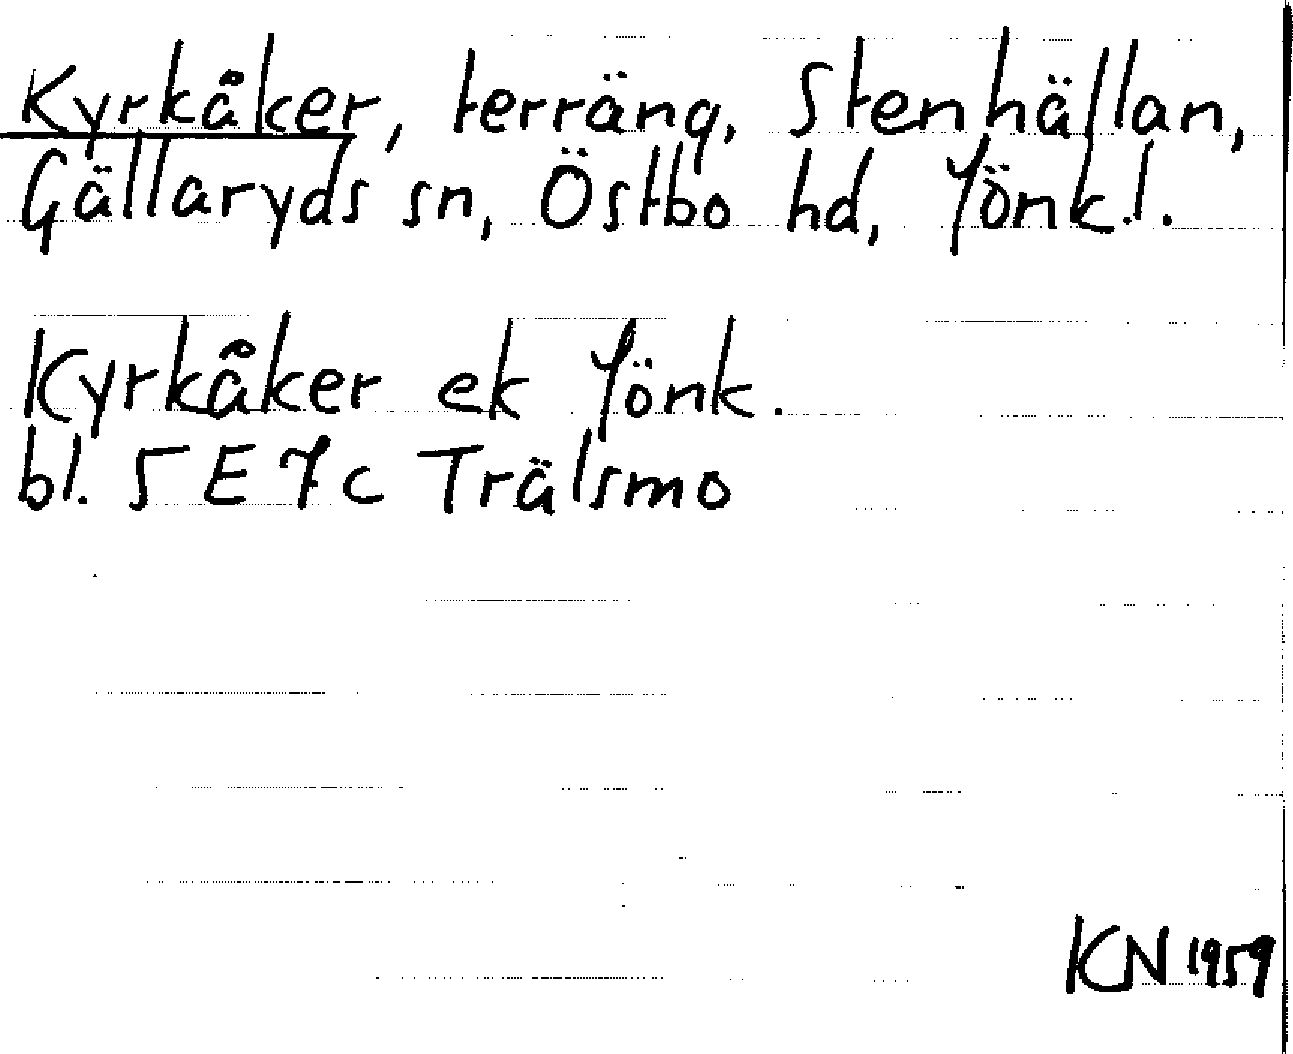 Kyrkåker, terräng, Stenhällan,
Gällaryds sn, Östbo hd, Jönk.l.
Kyrkåker ek Jönk.
bl. 5E7c Trälsmo
KN 1959